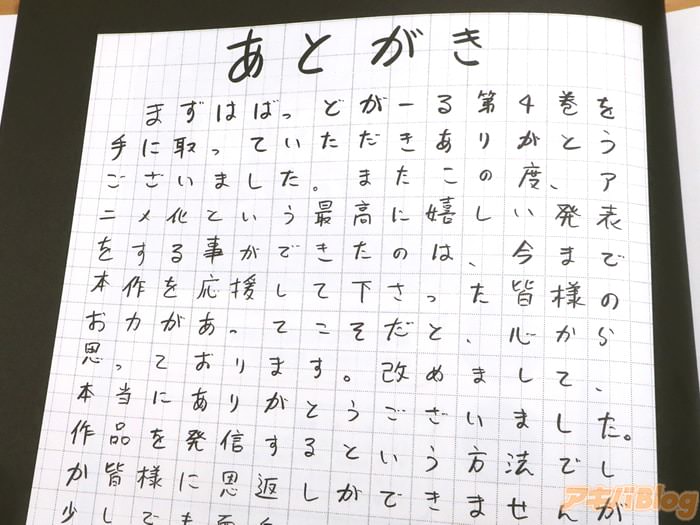 あとがき
まずはばっどがーる第4巻を
手に取っていただきありがとう
ございました。またこの度、ア
ニメ化という最高に嬉しい発表
をする事ができたのは、今まで
本作を応援して下さった皆様の
お力があってこそだと、心から
思っております。改めまして、
本当にありがとうございました。
作品を発信するという方法でし
か皆様に恩返しができませんが
少しでも
アキバBlog